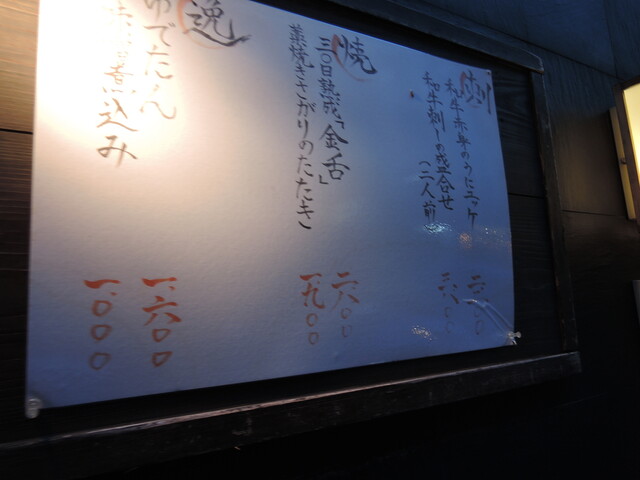 刺
和牛赤身のうにユッケ
和牛刺しの盛合せ
(二人前)
焼
三〇日熟成「金舌」
藁焼きさがりのたたき
二、六〇〇
一、九〇〇
逸
ゆでたん
込み
一、六〇〇
一、〇〇〇